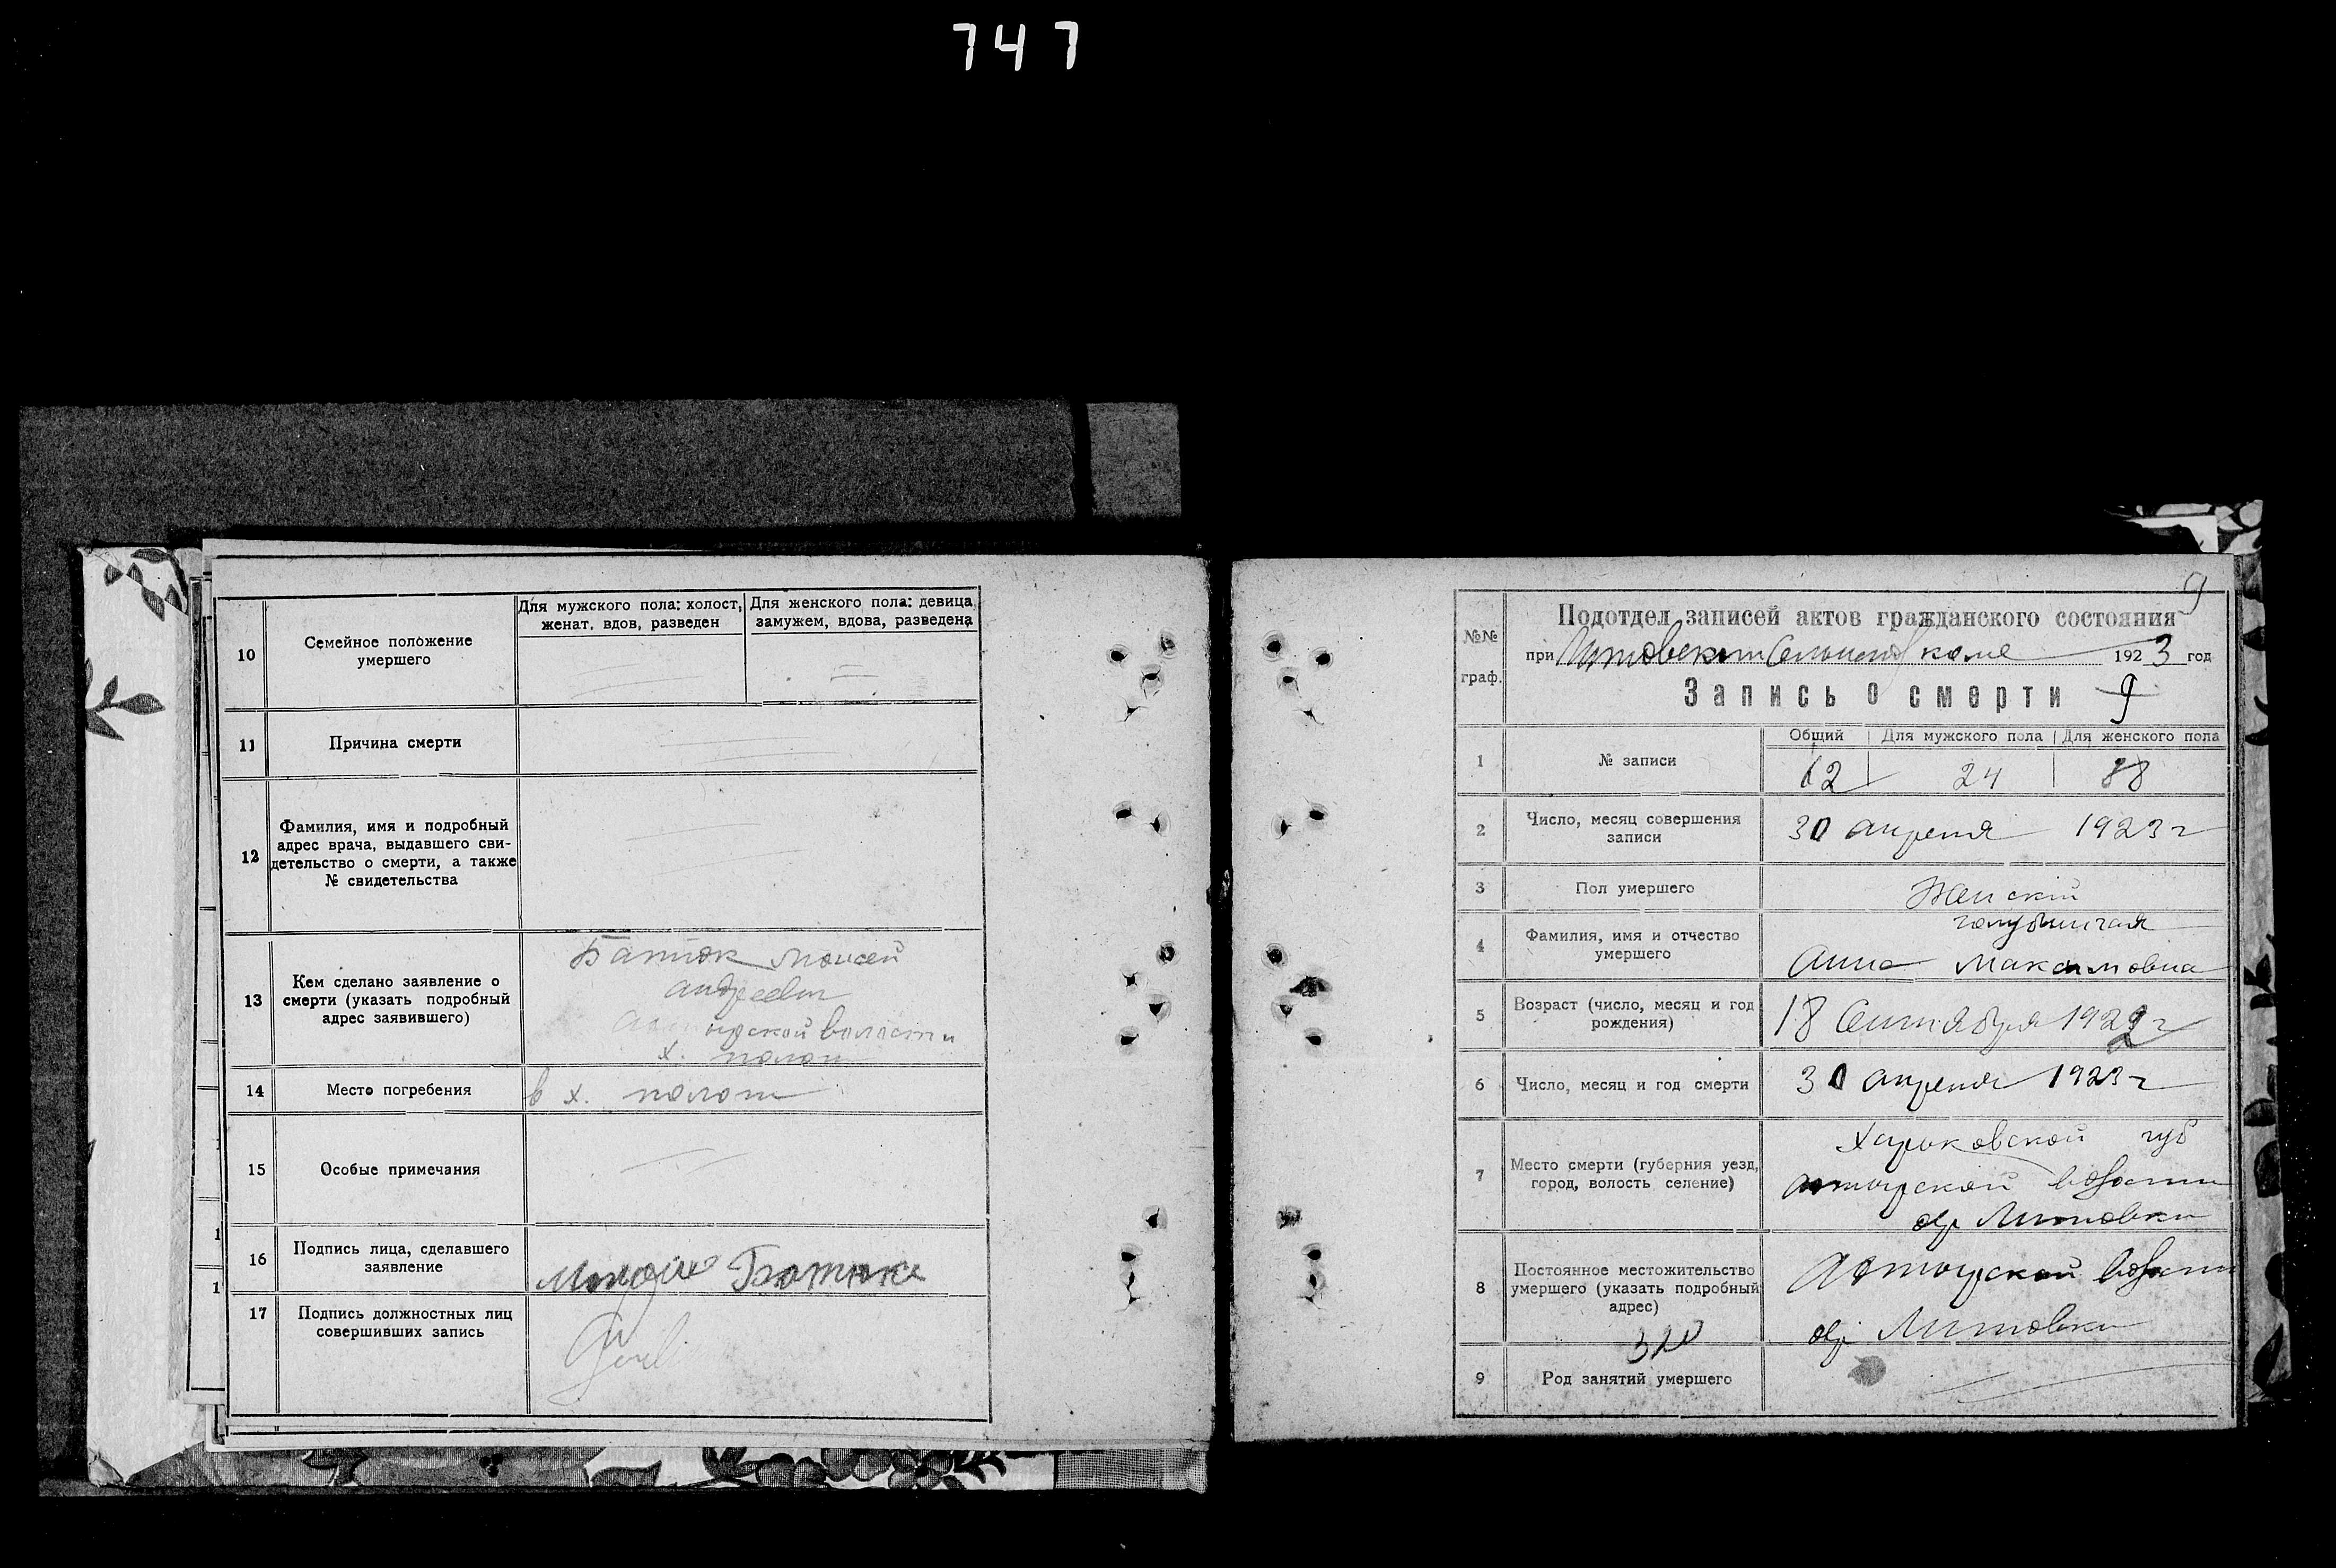 747
10
Семейное положение
умершего
Для мужского пола: холост,
женат, вдов, разведен
Для женского пола: девица,
замужем, вдова, разведена
11
Причина смерти
12
Фамилия, имя и подробный
адрес врача, выдавшего сви-
детельство о смерти, а также
№ свидетельства
13
Кем сделано заявление о
смерти (указать подробный
адрес заявившего)
Батюк Моисей
Андреевич
волости
х.
14
Место погребения
в х.
15
Особые примечания
16
Подпись лица, сделавшего
заявление
Батюк
17
Подпись должностных лиц
совершивших запись
9
№№
граф.
Подотдел записей актов гражданского состояния
при 1923 год
Запись о смерти 9
1
№ записи
Общий
Для мужского пола
Для женского пола
62
24
38
2
Число, месяц совершения
записи
30 апреля 1923 г
3
Пол умершего
Женский
4
Фамилия, имя и отчество
умершего
Анна Максимовна
5
Возраст (число, месяц и год
рождения)
18 Сентября 1922 г
6
Число, месяц и год смерти
30 апреля 1923 г
7
Место смерти (губерния уезд,
город, волость селение)
Харьковской губ
ахтырской волости
Литовки
8
Постоянное местожительство
умершего (указать подробный
адрес)
Ахтырской волости
Литовки
9
Род занятий умершего